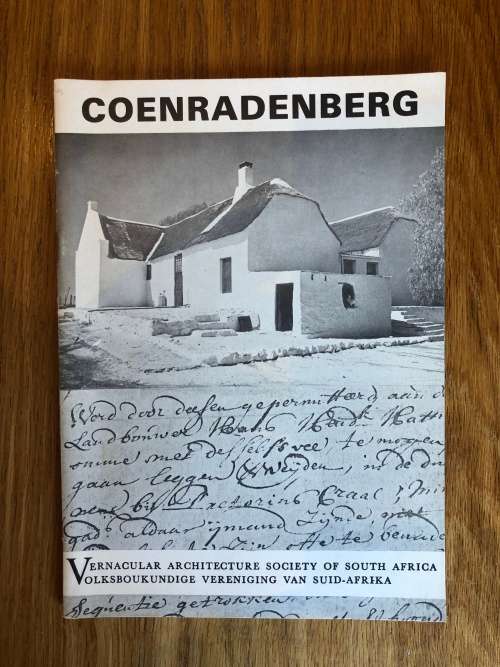 COENRADENBERG
Werd door deesen gepermitteerd aan d
Landbouwer Hans Hendk Hatti
omme met desselfs vee, te mogen
gaan leggen & Weyden, in de du
by Pactorius Craal
aldaar ijmand Zijnde,
te benade
VERNACULAR ARCHITECTURE SOCIETY OF SOUTH AFRICA
VOLKSBOUKUNDIGE VERENIGING VAN SUID-AFRIKA
Sequentie getrokken